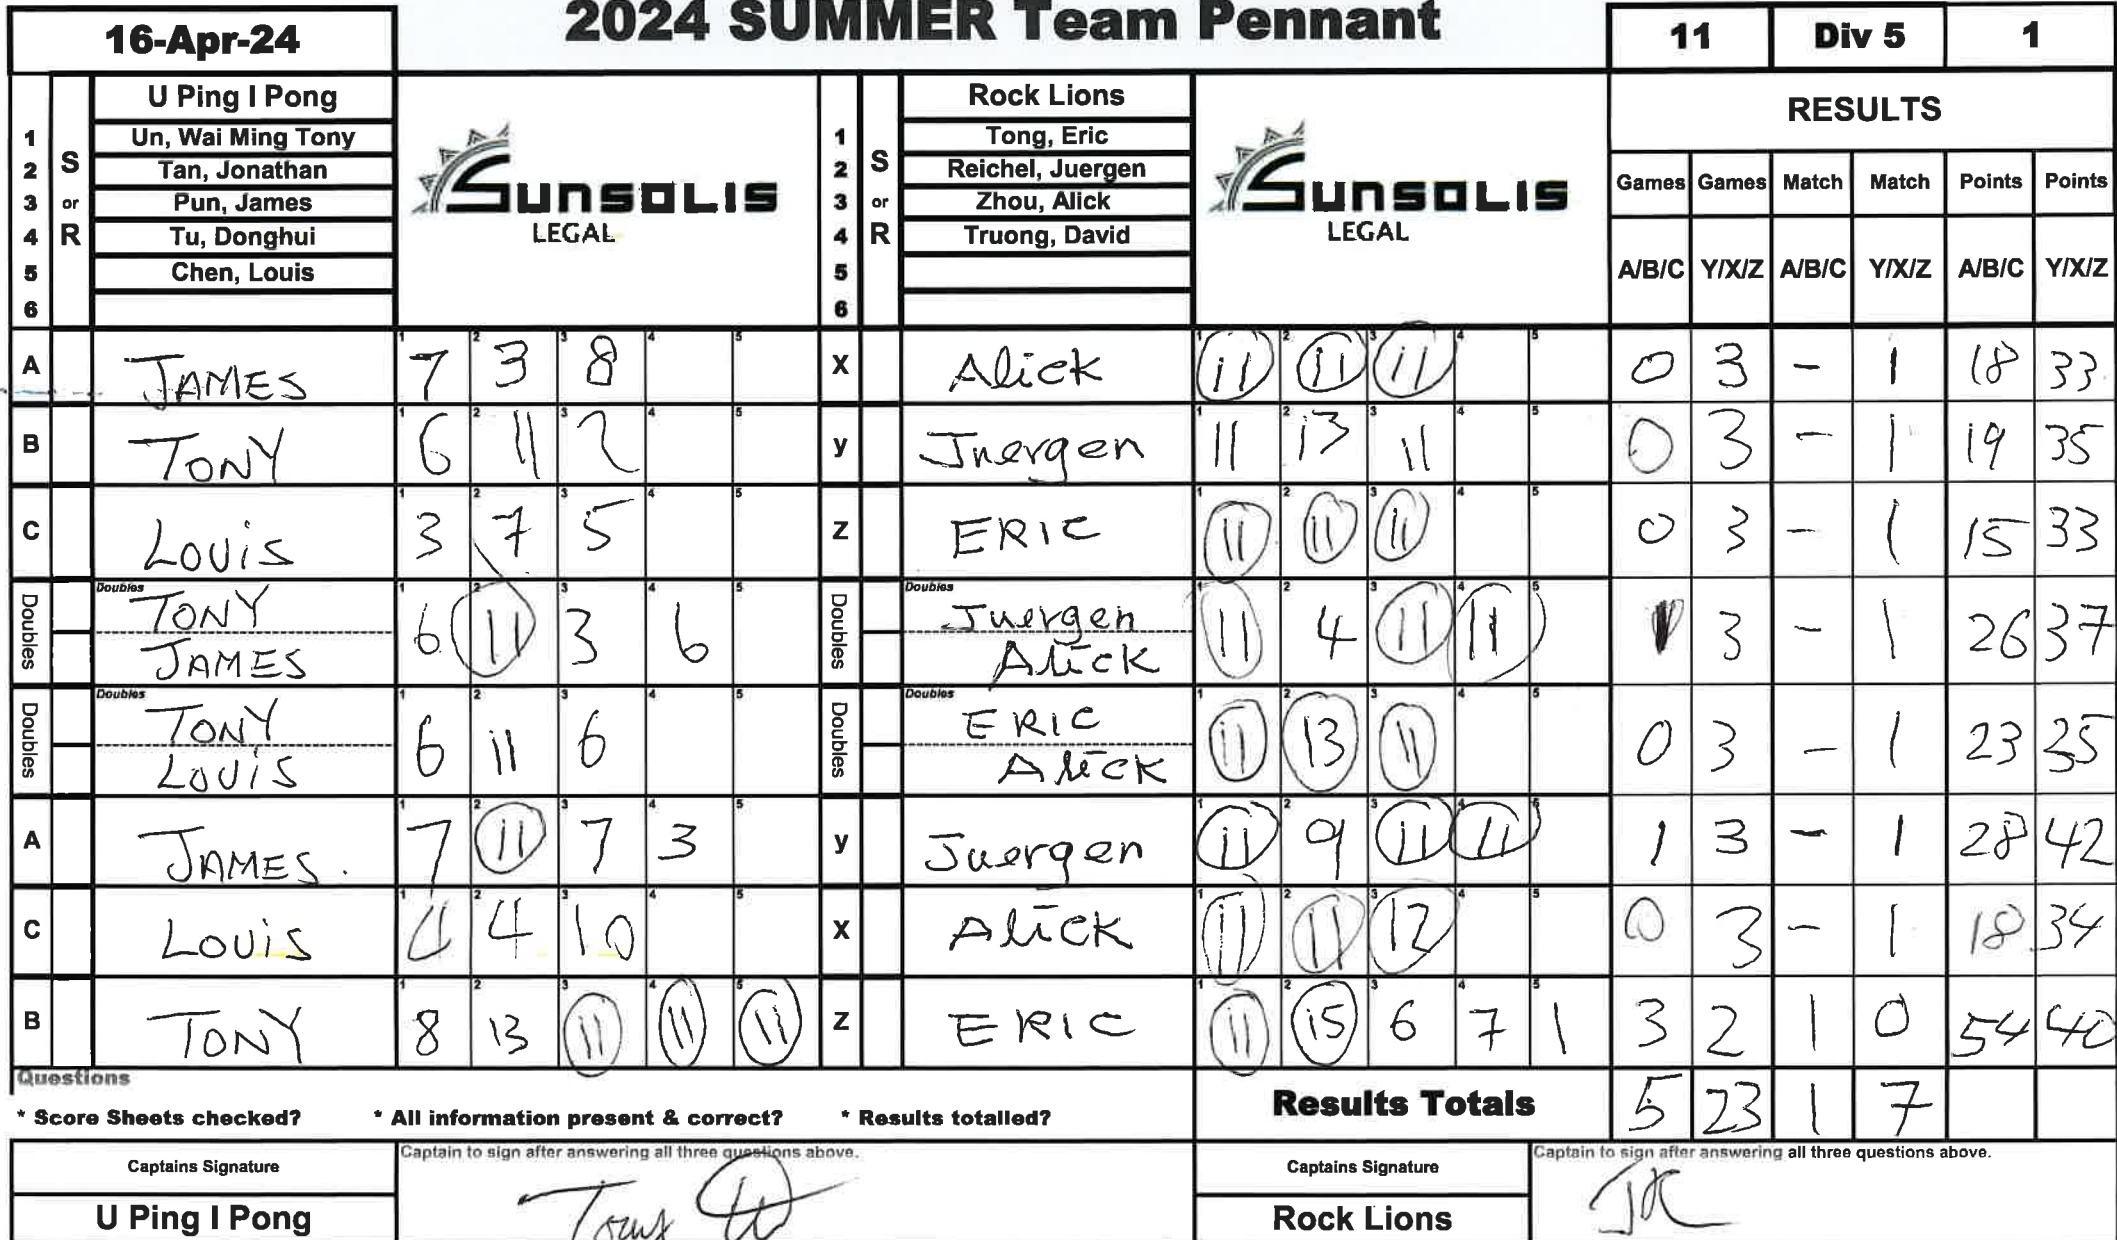 16-Apr-24
2024 SUMMER Team Pennant
11 Div 5 1
U Ping I Pong
1 Un, Wai Ming Tony
2 Tan, Jonathan
3 Pun, James
4 Tu, Donghui
5 Chen, Louis
6
S or R
SUNSOLIS
LEGAL
Rock Lions
1 Tong, Eric
2 Reichel, Juergen
3 Zhou, Alick
4 Truong, David
5
6
S or R
SUNSOLIS
LEGAL
RESULTS
Games Games Match Match Points Points
A/B/C Y/X/Z A/B/C Y/X/Z A/B/C Y/X/Z
A JAMES 7 3 8 X Alick 11 11 11 0 3 - 1 18 33
B TONY 6 11 2 y Juergen 11 13 11 0 3 - 1 19 35
C LOUIS 3 7 5 Z ERIC 11 11 11 0 3 - 1 15 33
Doubles TONY JAMES 6 11 3 6 Doubles Juergen Alick 11 4 11 11 1 3 - 1 26 37
Doubles TONY LOUIS 6 11 6 Doubles ERIC Alick 11 13 11 0 3 - 1 23 35
A JAMES. 7 11 7 3 y Juergen 11 9 11 11 1 3 - 1 28 42
C LOUIS 4 4 10 X Alick 11 11 12 0 3 - 1 18 34
B TONY 8 13 11 11 11 Z ERIC 11 15 6 7 1 3 2 1 0 54 40
Questions
* Score Sheets checked? * All information present & correct? * Results totalled?
Results Totals 5 23 1 7
Captains Signature
Captain to sign after answering all three questions above.
Tony
U Ping I Pong
Captains Signature
Captain to sign after answering all three questions above.
Rock Lions